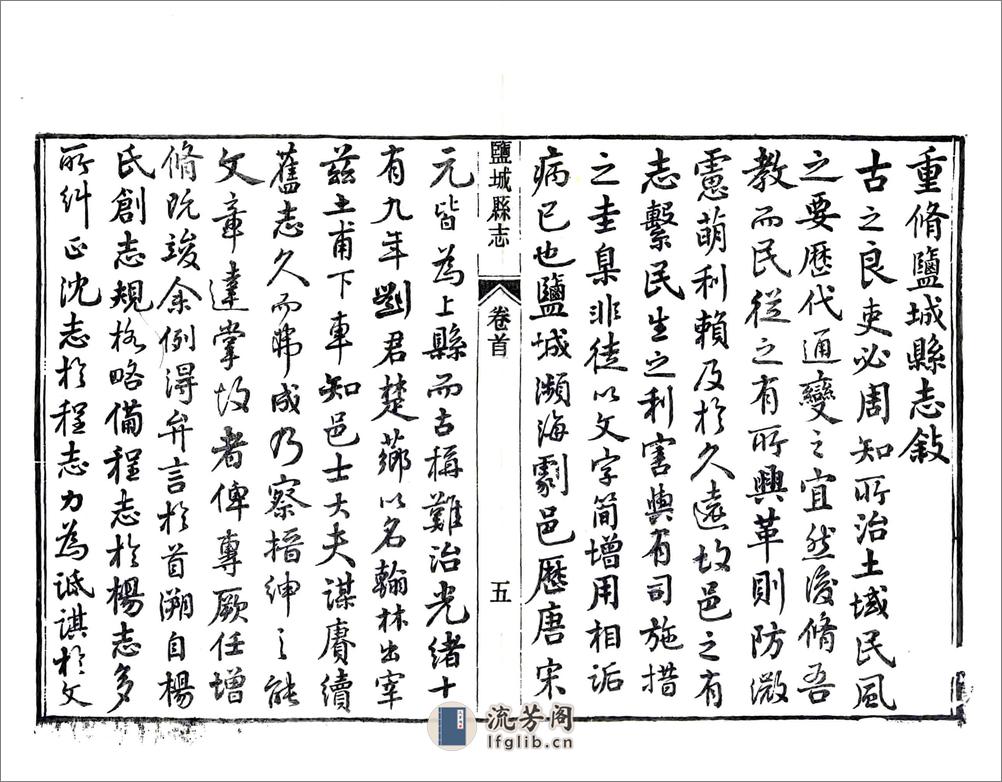 重脩鹽城縣志敘
古之良吏必周知所治土域民風
之要歷代通變之宜然後脩吾
教而民從之有所興革則防微
慮萌利賴及於久遠故邑之有
志繫民生之利害與有司施措
之圭臬非徒以文字簡增用相詬
病已也鹽城瀕海劇邑歷唐宋
鹽城縣志
卷首
五
元皆為上縣而古稱難治光緒十
有九年劉君楚薌以名翰林出宰
茲土甫下車知邑士大夫謀賡續
舊志久而弗成乃察搢紳之能
文章達掌故者俾專厥任增
脩既竣余例得弁言於首溯自楊
氏創志規格略備程志於楊志多
所糾正沈志於程志力為詆諆於文
流芳阁
lfglib.cn